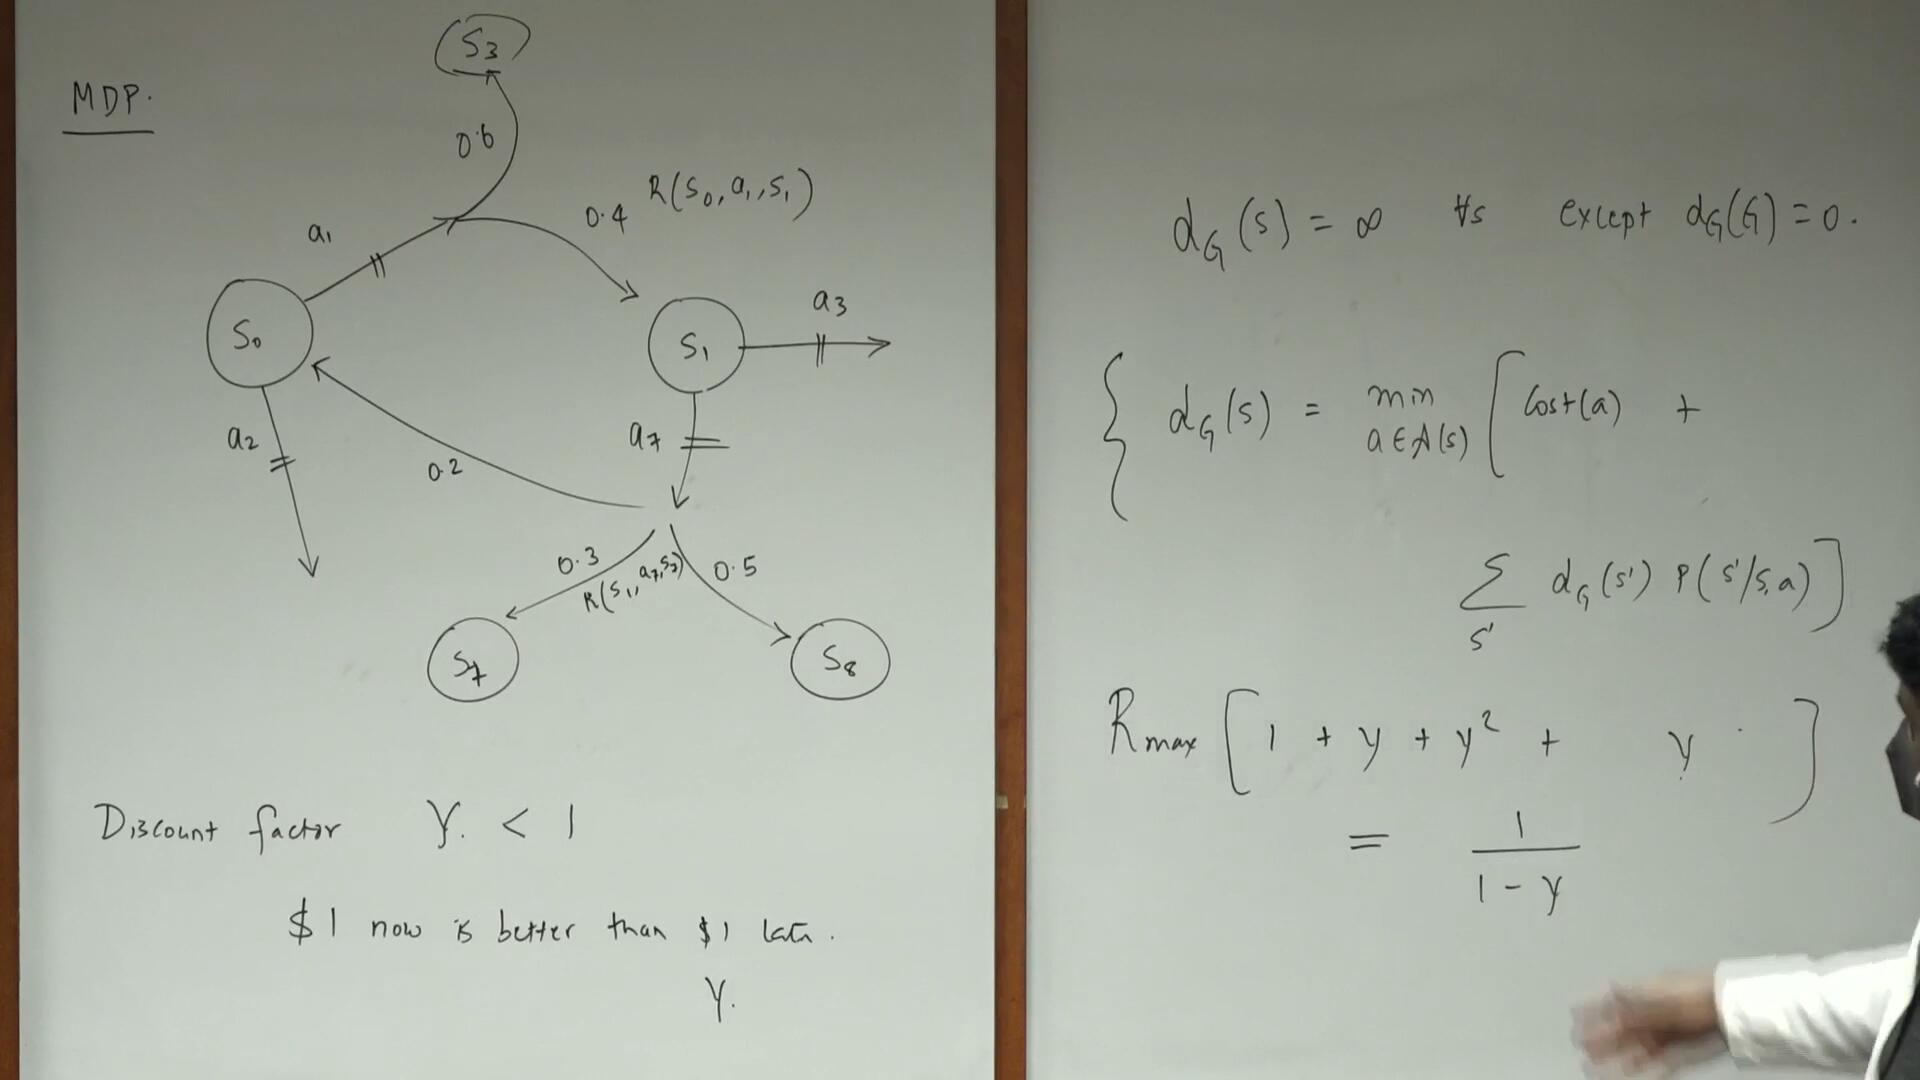 MDP.
S3
0.6
0.4 R(S0, a1, S1)
a1
S0
S1
a3
a2
a7
0.2
0.3
R(S1, a7, S7)
0.5
S7
S8
Discount factor γ. < 1
$1 now is better than $1 late.
γ.
dG(s) = ∞ ∀s except dG(G) = 0.
{ dG(s) = min a∈A(s) [ Cost(a) +
Σ s' dG(s') P(s'/s,a) ]
Rmax [ 1 + γ + γ² + γ ]
= 1 / (1 - γ)